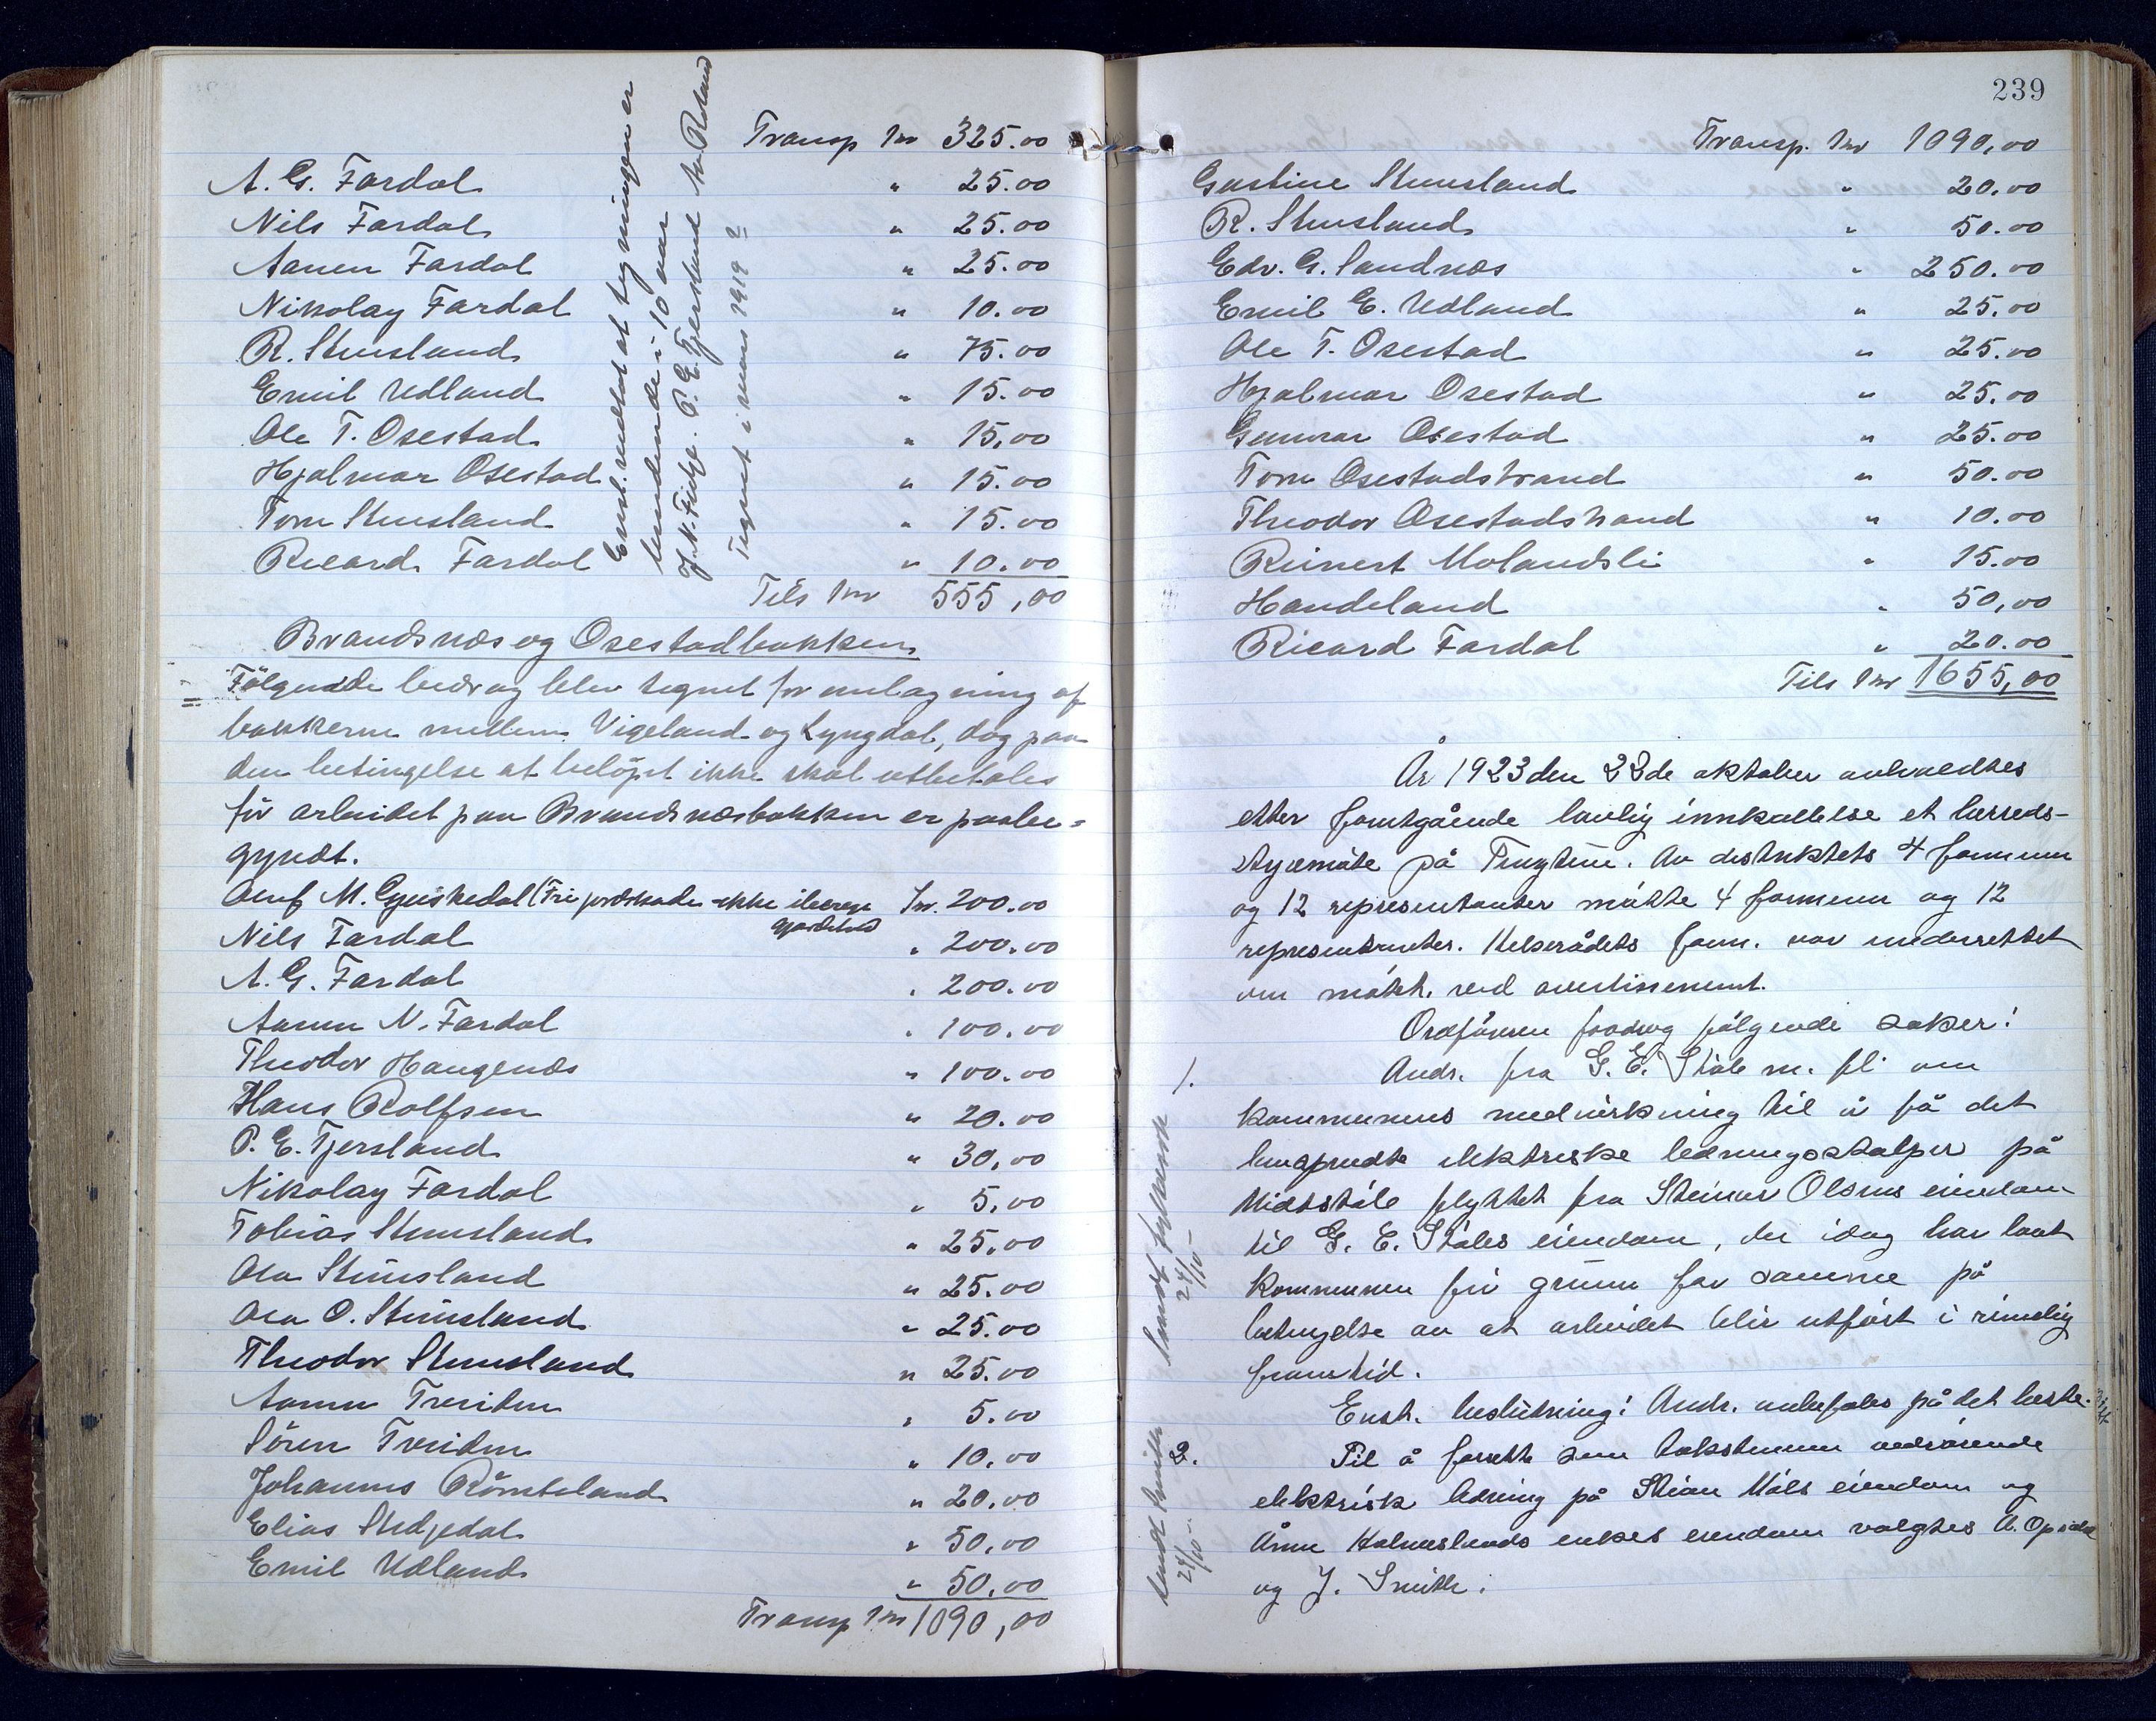 Transp kr 325.00
A. G. Fardal " 25.00
Nils Fardal " 25.00
Aanen Fardal " 25.00
Nikolay Fardal " 10.00
R. Stensland " 75.00
Emil Udland " 15.00
Ole T. Osestad " 15,00
Hjalmar Osestad " 15.00
Tom Stensland " 15.00
Ricard Fardal " 10.00
Tils kr 555,00
Enst. vedtat at tegningen er
bindende i 10 aar
J. N. Fidje. P. E. Tjersland Roland
Tegnet i mars 1919
Brandsnæs og Osestadbakken
Følgende bidrag blev tegnet for omlægning af
bakkerne mellem Vigeland og Lyngdal, dog paa
den betingelse at beløpet ikke skal utbetales
før arbeidet paa Brandsnæsbakken er paabe=
gyndt.
Oluf M. Gjuskedal (Fri jordskade ikke iberegn. gjærdehold kr. 200.00
Nils Fardal " 200.00
A. G. Fardal " 200.00
Aanen N. Fardal " 100.00
Theodor Haugenæs " 100.00
Hans Rolfsen " 20.00
P. E. Tjersland " 30,00
Nikolay Fardal " 5,00
Tobias Stensland " 25,00
Ola Stensland " 25.00
Ola O. Stensland " 25.00
Theodor Stensland " 25.00
Aanen Treiden " 5.00
Søren Treiden " 10.00
Johannes Rømteland " 20.00
Elias Stedjedal " 50,00
Emil Udland " 50,00
Transp kr 1090,00
239
Transp. kr 1090,00
Gustine Stensland " 20,00
R. Stensland " 50.00
Edv. G. Sandnæs " 250.00
Emil E. Udland " 25.00
Ole T. Osestad " 25.00
Hjalmar Osestad " 25.00
Gunvar Osestad " 25.00
Tom Osestadstrand " 50.00
Theodor Osestadstrand " 10.00
Reinert Molandsli " 15.00
Handeland " 50,00
Ricard Fardal " 20.00
Tils kr 1655,00
År 1923 den 22de oktober avholdtes
etter forutgående lovlig innkallelse et herreds-
styremøte på Tingtun. Av distriktets 4 formenn
og 12 representanter møtte 4 formenn og 12
representanter. Helserådets form. var underrettet
om møtet ved avertissement.
Ordføreren foredrog følgende saker:
1. Andr. fra G. E. Støle m. fl. om
kommunens medvirkning til å få det
elektriske ledningsstolper på
Midtstøle flyttet fra Steinar Olsens eiendom
til G. E. Støles eiendom, der idag har lovt
kommunen fri grunn for samme på
betingelse av at arbeidet blir utført i rimelig
framtid.
Enst. beslutning: Andr. anbefales på det beste.
2. Til å forrette som takstmenn vedrørende
elektrisk ledning på Stian Måls eiendom og
Ånen Holmeslands enkes eiendom valgtes A. Opsal
og J. Smith.
Sendt fylkesv.
24/10
Sendt Smith
24/10